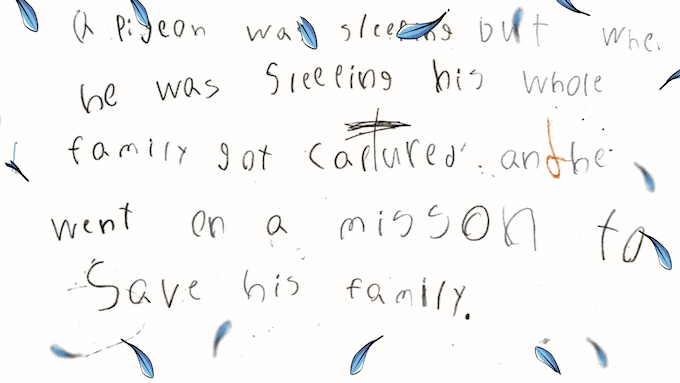 A Pigeon was sleeping but when
he was Sleeping his whole
family got captured. and he
went on a misson to
Save his family.